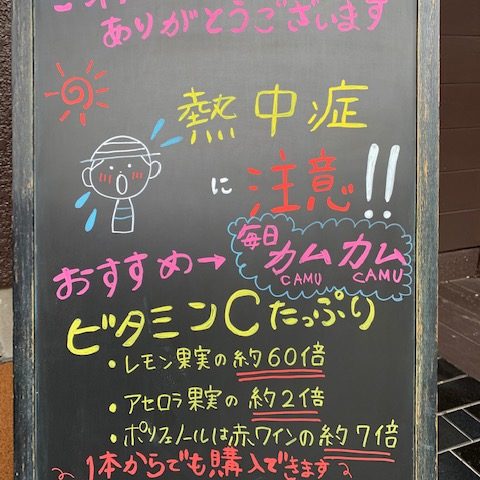 ありがとうございます
熱中症
に注意!!
おすすめ→毎日カムカム
CAMU CAMU
ビタミンCたっぷり
・レモン果実の約60倍
・アセロラ果実の約2倍
・ポリフェノールは赤ワインの約7倍
1本からでも購入できます